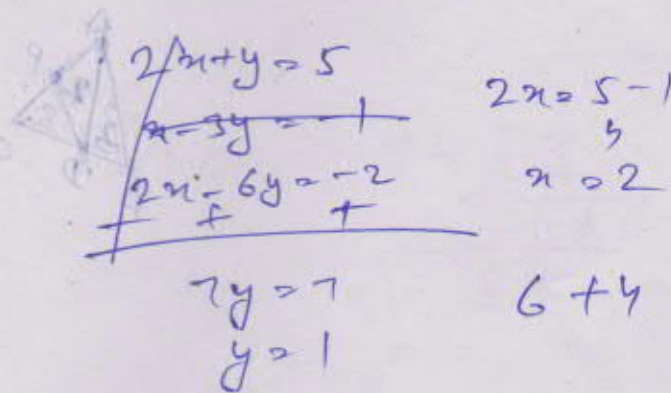 2x+y=5
x-3y=-1
2x-6y=-2
- + +
7y=7
y=1
2x=5-1
4
x=2
6+4